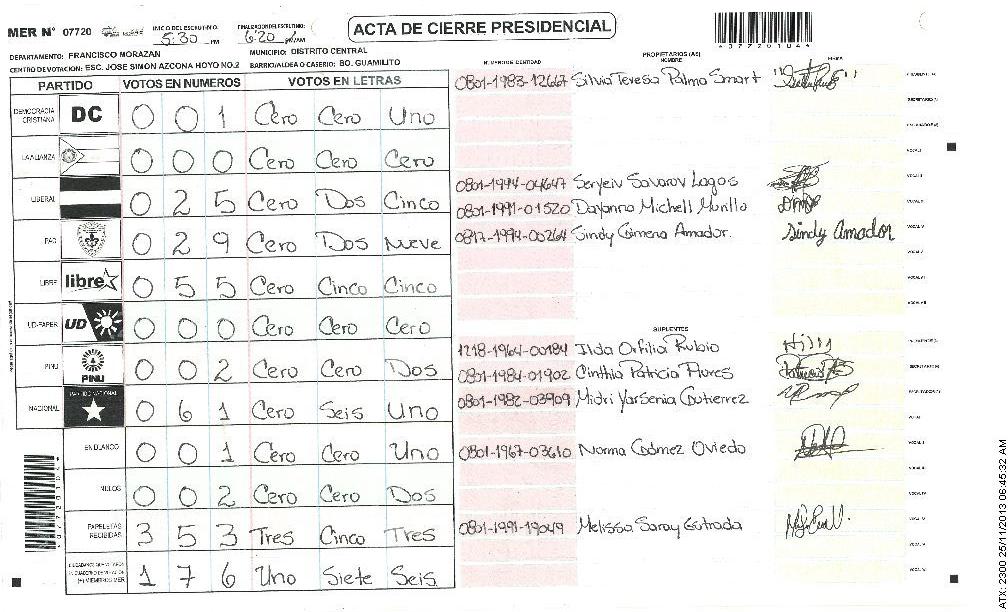 MER N° 07720
INICO DEL ESCRUTINIO: 5:30 PM
FINALIZACION DEL ESCRUTINIO: 6:20
ACTA DE CIERRE PRESIDENCIAL
4077201044
DEPARTAMENTO: FRANCISCO MORAZAN
MUNICIPIO: DISTRITO CENTRAL
CENTRO DE VOTACION: ESC. JOSE SIMON AZCONA HOYO NO.2
BARRIO/ALDEA O CASERIO: BO. GUAMILITO
PARTIDO VOTOS EN NUMEROS VOTOS EN LETRAS
DEMOCRACIA CRISTIANA DC 0 0 1 Cero Cero Uno
LA ALIANZA 0 0 0 Cero Cero Cero
LIBERAL 0 2 5 Cero Dos Cinco
PAC 0 2 9 Cero Dos Nueve
LIBRE libre 0 5 5 Cero Cinco Cinco
UD-FAPER UD 0 0 0 Cero Cero Cero
PINU PINU 0 0 2 Cero Cero Dos
NACIONAL PARTIDO NACIONAL 0 6 1 Cero Seis Uno
EN BLANCO 0 0 1 Cero Cero Uno
NULOS 0 0 2 Cero Cero Dos
PAPELETAS RECIBIDAS 3 5 3 Tres Cinco Tres
1 7 6 Uno Siete Seis
NUMERO DE IDENTIDAD
PROPIETARIOS (AS)
NOMBRE
FIRMA
0801-1983-12667 Silvia Teresa Palma Smart
0801-1994-04647 Seryein Savarov Lagos
0801-1991-01520 Dayanna Michell Murillo
0817-1994-00264 Sindy Gimena Amador. Sindy Amador
SUPLENTES
1218-1964-00184 Ilda Orfilia Rubio
0801-1984-01902 Cinthia Patricia Flores
0801-1982-03909 Midri Yarsenia Goutierrez
0801-1967-03610 Norma Gómez Oviedo
0801-1991-19049 Melissa Saray Estrada
ATX: 2300 25/11/2013 06:45:32 AM